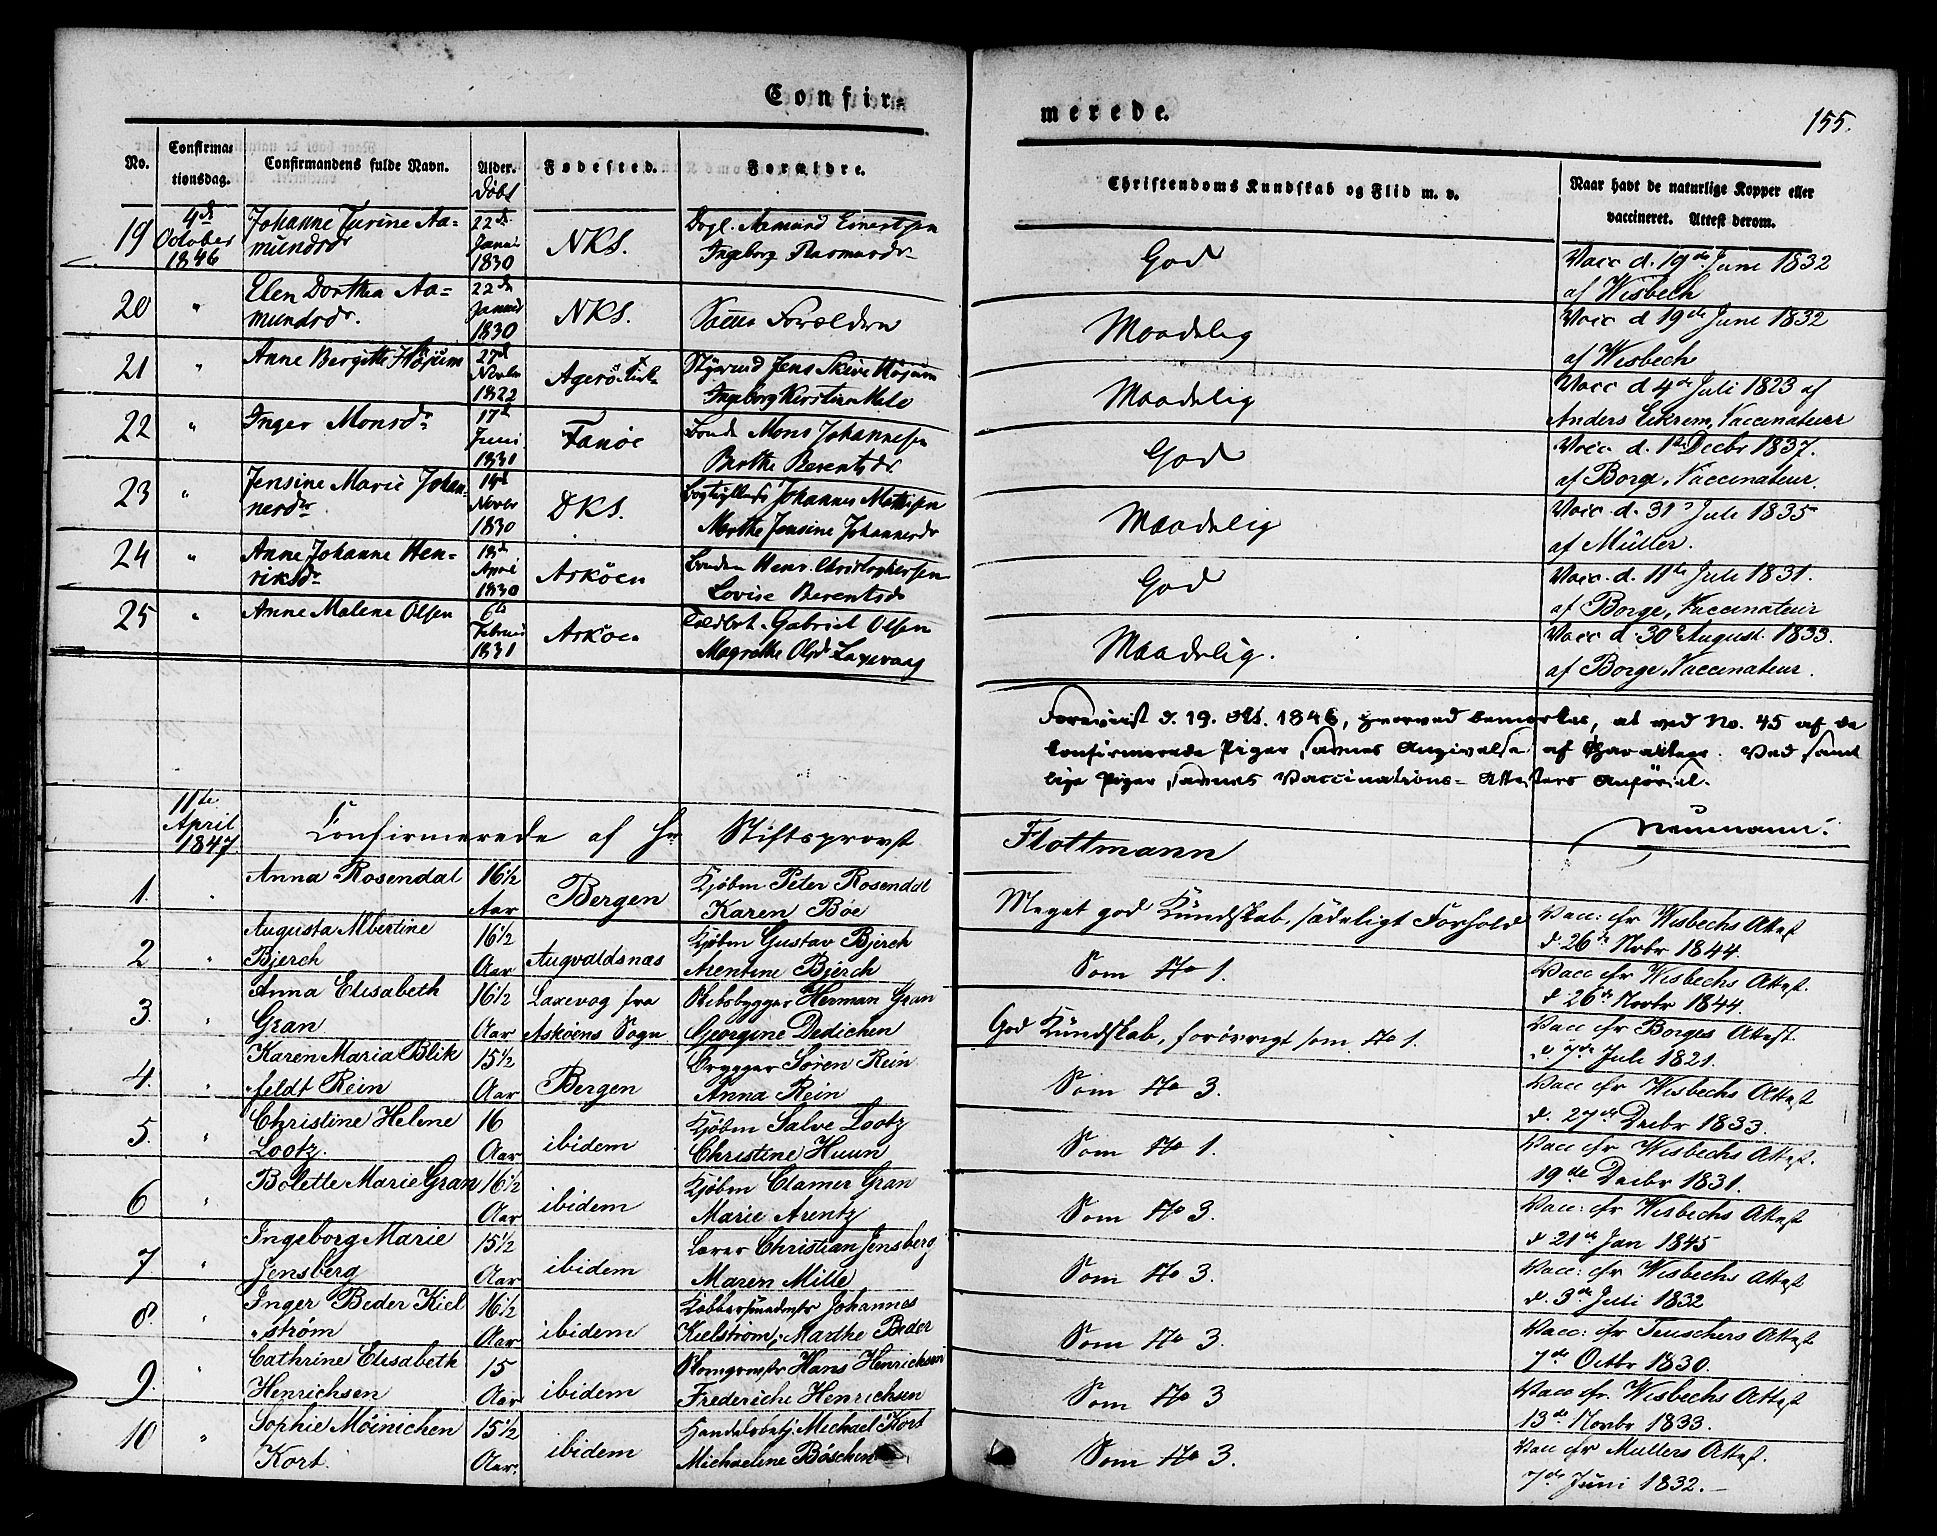 Confir=
merede.
155.
No.
Confirma=
tionsdag.
Confirmandens fulde Navn.
Alder.
Døbt
Fødested.
Forældre.
Christendoms Kundskab og Flid m. v.
Naar havt de naturlige Kopper eller
vaccineret. Attest derom.
19
4de
October
1846
Johanne Turine Aa=
mundsdr
22de
Janu
1830
NKS.
Aamund Einertsen
Ingeborg Rasmusdr
God
Vacc d. 19de Juni 1832
af Wisbech
20
"
Elen Dorthea Aa=
mundsdr.
22de
Januar
1830
NKS.
Samme Forældre
Maadelig
Vacc d 19de Juni 1832
af Wisbech
21
"
Anne Bergitte Højum
27de
1822
Agerö
Jens Højum
Ingeborg Kirstine
Maadelig
Vacc d 4de Juli 1823 af
Anders Eikrem, Vaccinateur
22
"
Inger Monsdr
17de
Juni
1831
Fanöe
Bonde Mons Johannesen
Berthe Berentsdr
God
Vacc d. 1ste Decbr 1837.
af Borge, Vaccinateur.
23
"
Jensine Marie Johan=
nesdr
Novbr
1830
DKS.
Johannes
Marthe Jensine Johannesdr
Maadelig
Vacc d. 31 Juli 1835
af Müller.
24
"
Anne Johanne Hen=
riksdr
April
1830
Asköen
Bonden Henr. Christophersen
Lovise Berentsdr
God
Vacc. d. 11te Juli 1831.
af Borge, Vaccinateur
25
"
Anne Malene Olsen
6te
Februar
1831
Asköen
Gabriel Olsen
Magrethe Olsd. Laxevaag
Maadelig.
Vacc d. 30 August 1833.
af Borge, Vaccinateur.
Foreviist d. 19. Okt. 1846, hvorved bemærkes, at ved No. 45 af de
confirmerede Piger savnes Angivelse af Charakteer. Ved samt
lige Piger savnes Vaccinations-Attesters Anførsel.
Neumann.
11te
April
1847
Confirmerede af Hr Stiftsprovst
Flottmann
1.
"
Anna Rosendal
16½
Aar
Bergen
Kjøbm Peter Rosendal
Karen Böe
Meget god Kundskab, sædeligt Forhold
Vacc: efr Wisbechs Attest
d. 26de Novbr 1844.
2
"
Augusta Albertine
Bjerch
16½
Aar
Augvaldsnæs
Kjøbm Gustav Bjerch
Arentine Bjerch
Som No 1.
Vacc efr Wisbechs Attest.
d 26de Novbr 1844.
3.
"
Anna Elisabeth
Gran
16½
Aar
Laxevog fra
Askøens Sogn
Skibsbygger Herman Gran
Georgine Dedichen
God Kundskab, forøvrigt som No 1.
Vacc efr Borges Attest.
d. 7de Juli 1821.
4.
"
Karen Maria Blik
"feldt Rein
15½
Aar
Bergen
Brygger Sören Rein
Anna Rein
Som No 3.
Vacc efr Wisbechs Attest
d. 27de Decbr 1833.
5.
"
Christine Helene
Lootz.
16
Aar
ibidem
Kjøbm Salve Lootz
Christine Huun
Som No 1.
Vacc efr Wisbechs Attest.
19de Decbr 1831.
6
"
Bolette Marie Gran
16½
Aar
ibidem
Kjøbm Clamer Gran
Marie Arentz
Som No 3.
Vacc: efr Wisbechs Attest
d 21de Jan 1845
7
"
Ingeborg Marie
Jensberg
15½
Aar
ibidem
Lærer Christian Jensberg
Maren Mille
Som No 3.
Vacc: efr Wisbechs Attest
d. 3de Juli 1832
8.
"
Inger Beder Kiel
"strøm
16½
Aar
ibidem
Kobbersmedmstr Johannes
Kielstrøm, Marthe Beder
Som No 3.
Vacc: efr Teuschers Attest
7de Octbr 1830.
9.
"
Cathrine Elisabeth
Henrichsen
15
Aar
ibidem
Hans Henrichsen
Frederiche Henrichsen
Som No 3
Vacc efr. Wisbechs Attest
13de Novbr 1833.
10
"
Sophie Möinichen
Kort.
15½
Aar.
ibidem
Handelsbetj. Michael Kort
Michaeline Böschen
Som No 3.
Vacc efr Mullers Attest.
7de Juni 1832.-